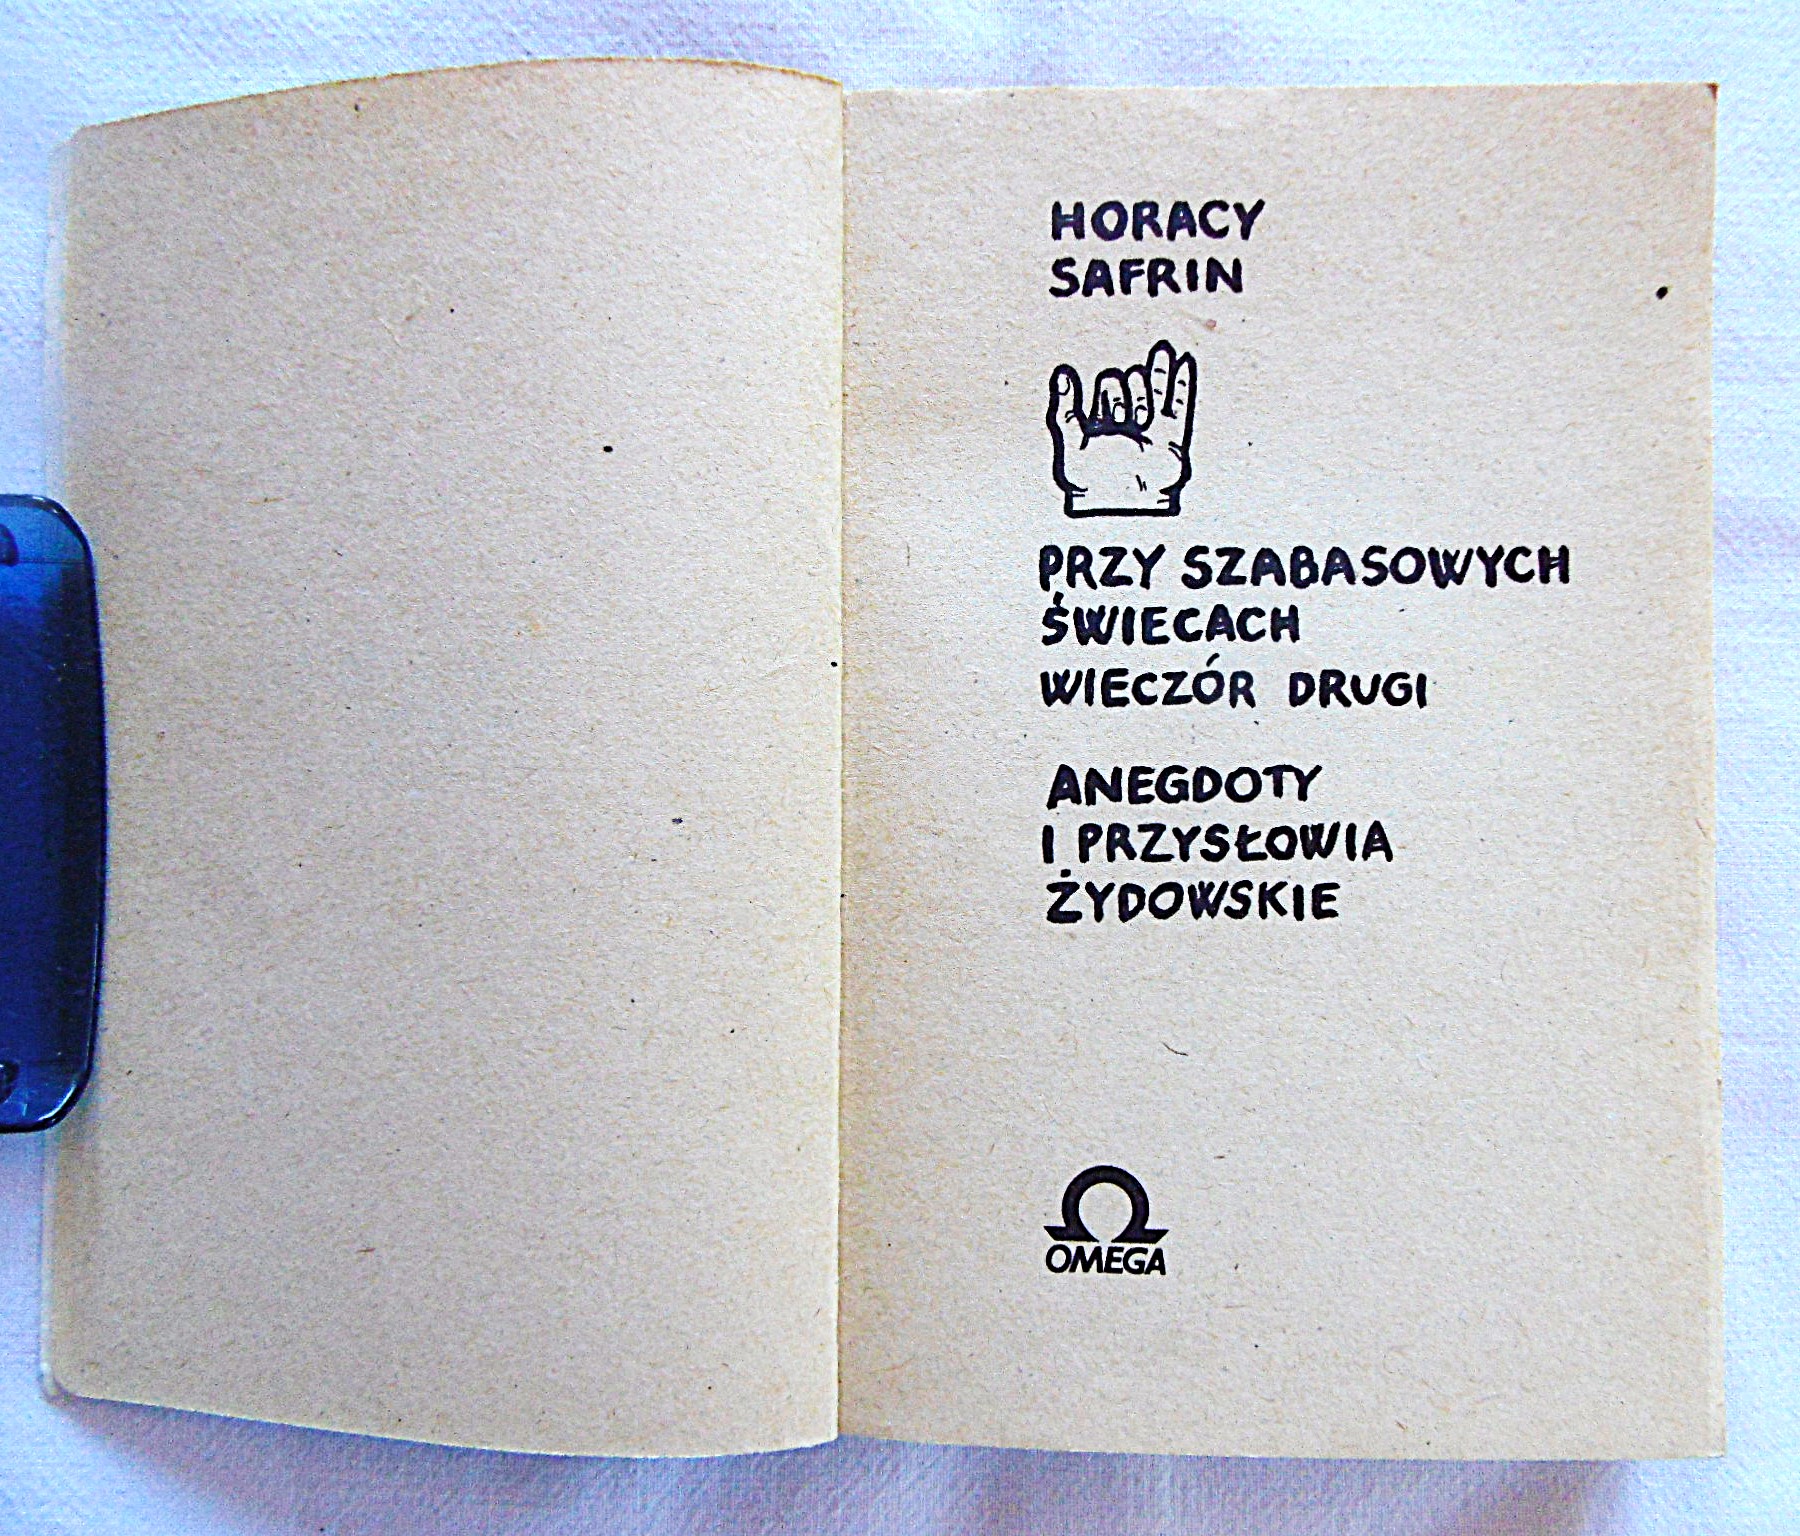 HORACY
SAFRIN
PRZY SZABASOWYCH
ŚWIECACH
WIECZÓR DRUGI
ANEGDOTY
I PRZYSŁOWIA
ŻYDOWSKIE
OMEGA